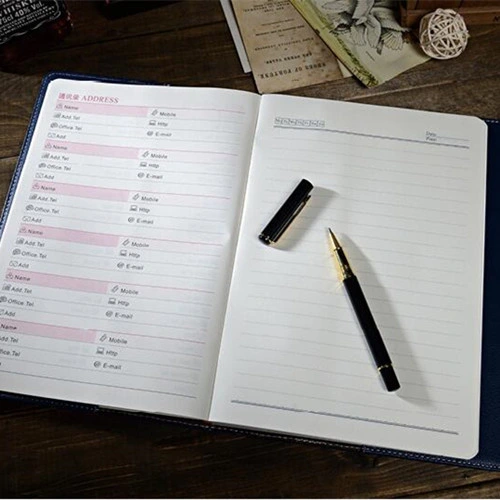 通讯录 ADDRESS
Name Mobile
Add.Tel Http
Office.Tel E-mail
Add
Name Mobile
Add.Tel Http
Office.Tel E-mail
Add
Name Mobile
Add.Tel Http
Office.Tel E-mail
Add
Name Mobile
Add.Tel Http
Office.Tel E-mail
Add
Name Mobile
Add.Tel Http
Office.Tel E-mail
Add
Name Mobile
Add.Tel Http
Office.Tel E-mail
Date
OF FORTUNE